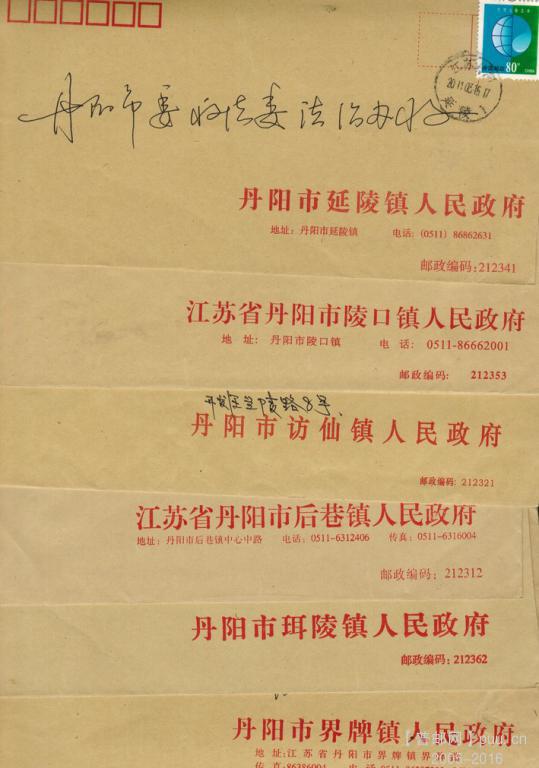 80分
江苏
2011.05.16.17
丹阳市委政法委法治办收
丹阳市延陵镇人民政府
地址：丹阳市延陵镇 电话：(0511) 86862631
邮政编码：212341
江苏省丹阳市陵口镇人民政府
地 址： 丹阳市陵口镇 电 话： 0511-86662001
邮政编码： 212353
开发区兰陵路8号、
丹阳市访仙镇人民政府
邮政编码：212321
江苏省丹阳市后巷镇人民政府
地址：丹阳市后巷镇中心中路 电话：0511-6312406 传真：0511-6316004
邮政编码：212312
丹阳市珥陵镇人民政府
邮政编码：212362
丹阳市界牌镇人民政府
地址：江苏省丹阳市界牌镇界
传真：86386004 电话：
[普邮网] puu.cn
2006-2016